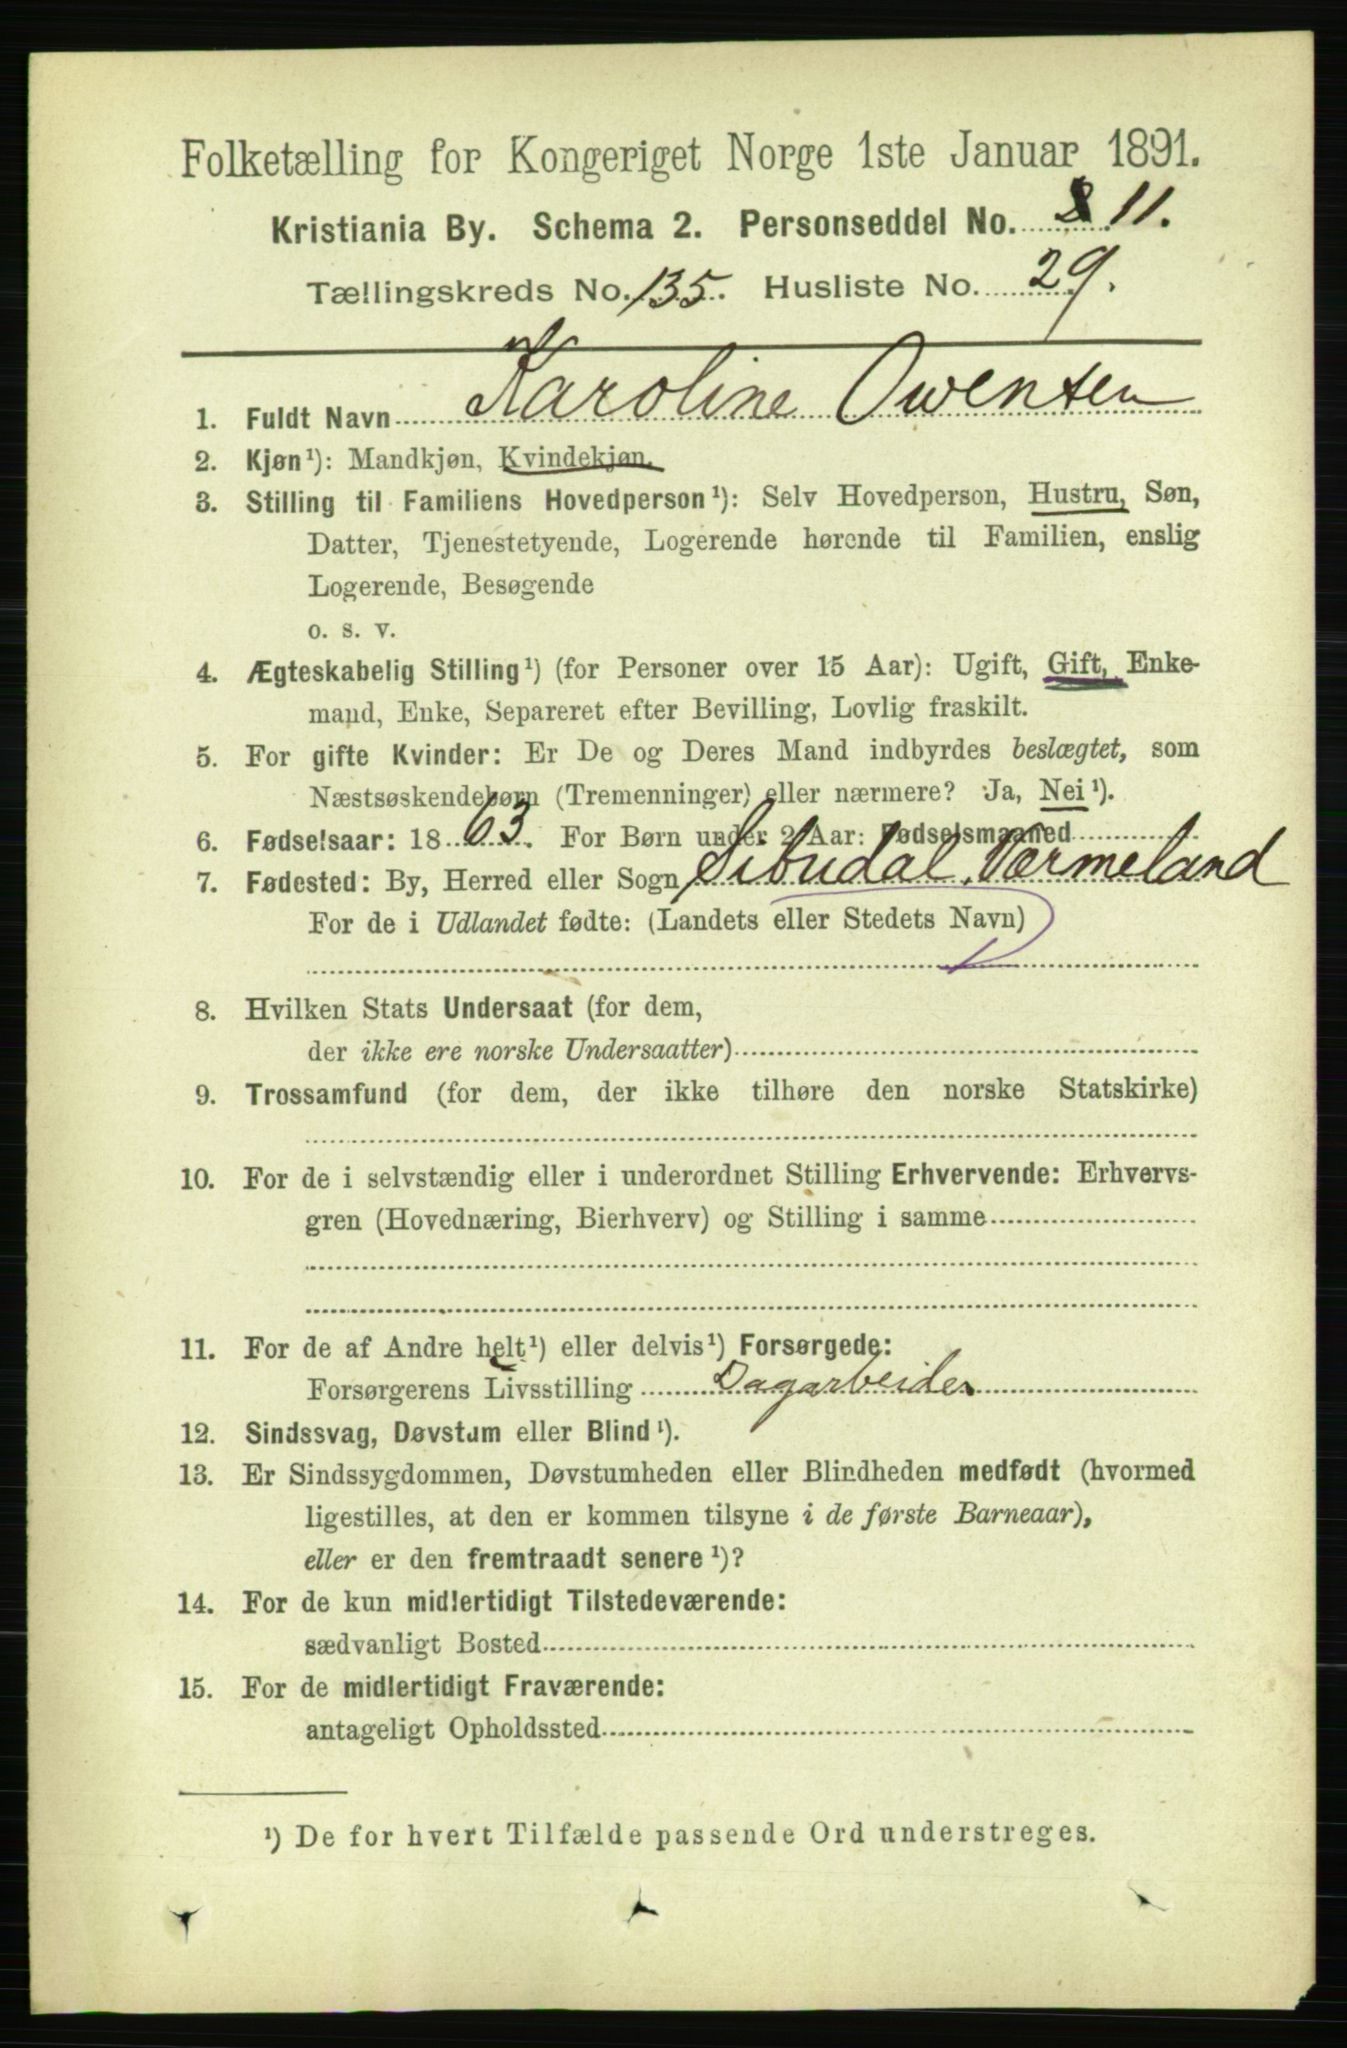 Folketælling for Kongeriget Norge 1ste Januar 1891.
Kristiania By. Schema 2. Personseddel No. 8 11.
Tællingskreds No. 135. Husliste No. 29.
1. Fuldt Navn Karoline Owensen
2. Kjøn¹): Mandkjøn, Kvindekjøn.
3. Stilling til Familiens Hovedperson¹): Selv Hovedperson, Hustru, Søn,
Datter, Tjenestetyende, Logerende hørende til Familien, enslig
Logerende, Besøgende
o. s. v.
4. Ægteskabelig Stilling¹) (for Personer over 15 Aar): Ugift, Gift, Enke-
mand, Enke, Separeret efter Bevilling, Lovlig fraskilt.
5. For gifte Kvinder: Er De og Deres Mand indbyrdes beslægtet, som
Næstsøskendebørn (Tremenninger) eller nærmere? Ja, Nei¹).
6. Fødselsaar: 1863. For Børn under 2 Aar: Fødselsmaaned
7. Fødested: By, Herred eller Sogn Værmeland
For de i Udlandet fødte: (Landets eller Stedets Navn)
8. Hvilken Stats Undersaat (for dem,
der ikke ere norske Undersaatter)
9. Trossamfund (for dem, der ikke tilhøre den norske Statskirke)
10. For de i selvstændig eller i underordnet Stilling Erhvervende: Erhvervs-
gren (Hovednæring, Bierhverv) og Stilling i samme
11. For de af Andre helt¹) eller delvis¹) Forsørgede:
Forsørgerens Livsstilling Dagarbeider
12. Sindssvag, Døvstum eller Blind¹).
13. Er Sindssygdommen, Døvstumheden eller Blindheden medfødt (hvormed
ligestilles, at den er kommen tilsyne i de første Barneaar),
eller er den fremtraadt senere¹)?
14. For de kun midlertidigt Tilstedeværende:
sædvanligt Bosted
15. For de midlertidigt Fraværende:
antageligt Opholdssted
¹) De for hvert Tilfælde passende Ord understreges.